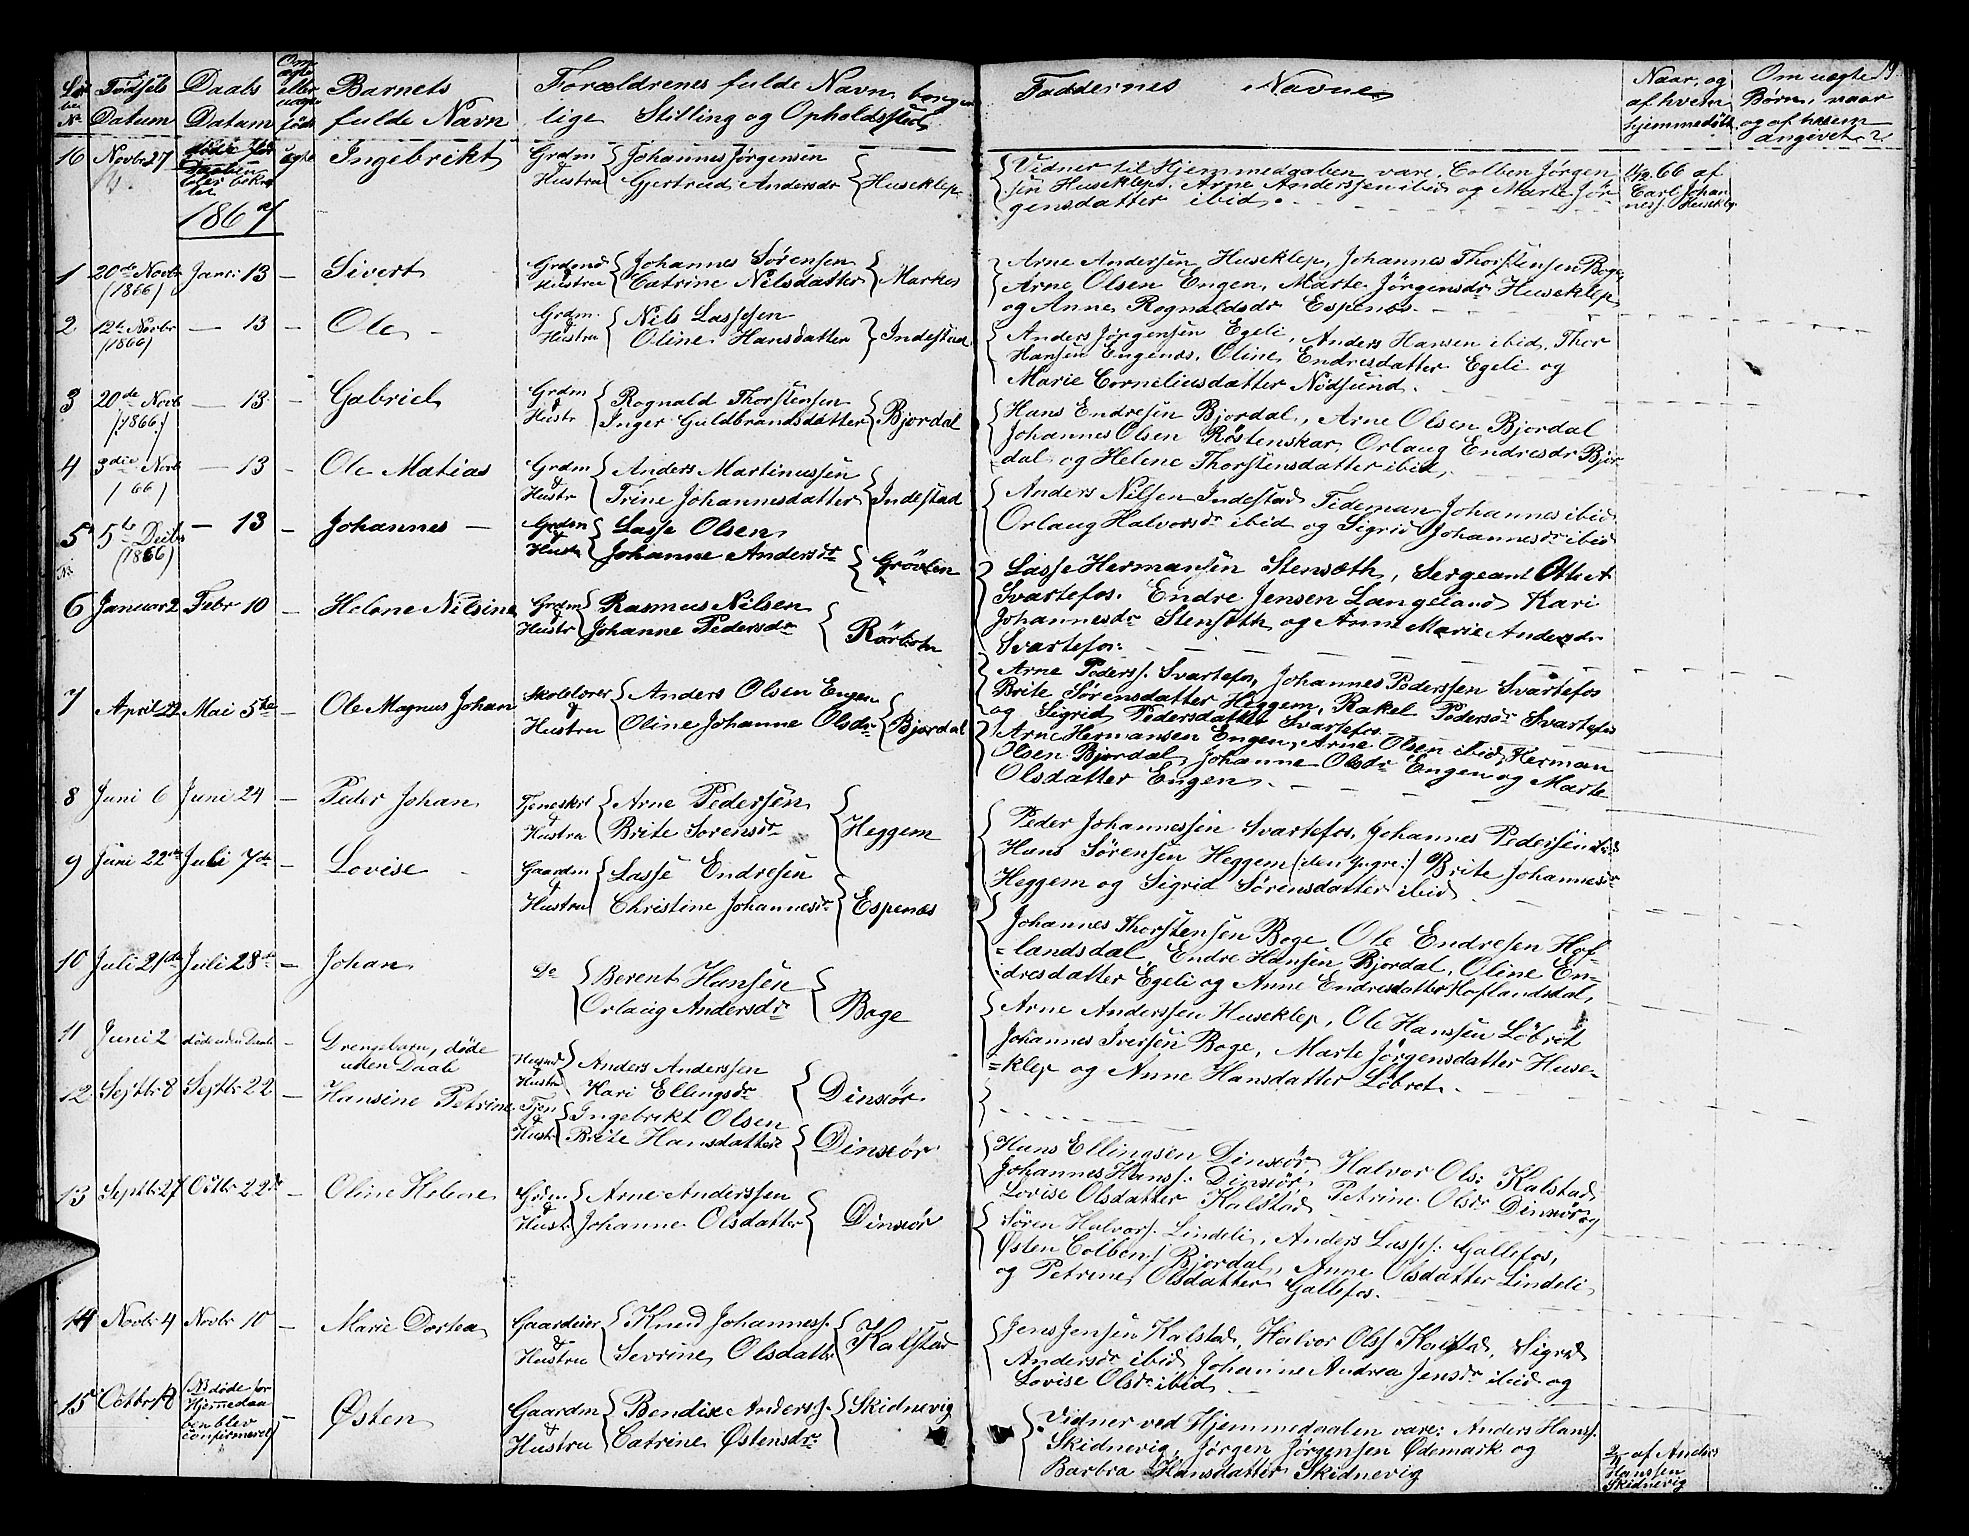 Løbe Nr. Fødsels Datum Daabs Datum Om ægte eller uægte født Barnets fulde Navn Forældrenes fulde Navn, borgerlige Stilling og Opholdssted Faddernes Navne Naar, og af hvem hjemmedøbt Om uægte Børn, naar og af hvem angivet? 19
16 Novbr 27 døde før Daaben blev bekræftet ægte Ingebrikt Grdm Johannes Jørgensen
Hustru Gjertrud Andersdr Huseklep
Vidner til Hjemmedaaben vare, Colben Jørgen
sen Huseklep, Arne Anderssen ibid og Marte Jør
gensdatter ibid.
66 af
Carl Johan
ness. Huseklep
1867
1 20de Novbr (1866) Janr: 13 — Sivert Grdmd & Hustru Johannes Sørensen
Catrine Nilsdatter Markes
Arne Andersen Huseklep, Johannes Thorstensen Boge,
Arne Olsen Engen, Marte Jørgensdr Huseklep
og Anne Rognaldsdr Espenæs.
2 12te Novbr (1866) — 13 — Ole Grdm. & Hustru Nils Lassesen
Oline Hansdatter Indestad
Anders Jørgensen Egeli, Anders Hansen ibid, Thor
Hansen Engenæs, Oline Endresdatter Egeli og
Marie Corneliusdatter Nodsund.
3 20de Novb (1866) — 13 — Gabriel Grdm & Hustr Rognald Thorstensen
Inger Guldbrandsdatter Bjordal
Hans Endresen Bjordal, Arne Olsen Bjordal
Johannes Olsen Röstenskar, Orlaug Endresdr Bjor
dal og Helene Thorstensdatter ibid,
4 3die Novb (66) — 13 — Ole Matias Grdm & Hustr Anders Martinussen
Trine Johannesdatter Indestad
Anders Nilsen Indestad Tideman Johannes ibid
Orlaug Halvorsdr ibid og Sigrid Johannesdr ibid
5 5te Decbr (1866) — 13 — Johannes — Grdm & Hustr Lasse Olsen
Johanne Andersdr Gröolen
Lasse Hermansen Stensæth, Sergeant
Svartefos. Endre Jensen Langeland Kari
Johannesdr Stensæth og Anne Marie Andersdr
Svartefos.
6 Januar 2 Febr 10 — Helene Nilsine Grdm & Hustr Rasmus Nilsen
Johanne Pedersdr Rörbotn
Arne Peders. Svartefos, Johannes Pederssen Svartefos
Brite Sørensdatter Heggem, Rakel Pedersdr Svartefos
og Sigrid Pedersdatter Svartefos.
7 April 22 Mai 5te — Ole Magnus Johan Skolelærer & Hustru Anders Olsen Engen
Oline Johanne Olsdr Bjordal
Arne Hermansen Engen, Arne Olsen ibid, Herman
Olsen Bjordal, Johanne Olsdr Engen og Marte
Olsdatter Engen.
8 Juni 6 Juni 24 — Peder Johan & Hustru Arne Pedersen
Brite Sorensdr Heggem
Peder Johannessen Svartefos, Johannes Pederssen ibid
Hans Sørensen Heggem (den Yngre:) Brite Johannesdr
Heggem og Sigrid Sørensdatter ibid
9 Juni 22 Juli 7de — Lovise Gaardm & Hustru Lasse Endresen
Christine Johannesdr Espenæs
Johannes Thorstensen Boge, Ole Endresen Hof-
-landsdal, Endre Hansen Bjordal, Oline En-
-dresdatter Egeli og Anne Endresdatter Hoflandsdal,
10 Juli 21de Juli 28de — Johan Do Berent Hansen
Orlaug Andersdr Boge
Arne Anderssen Huseklep, Ole Hanssen Löbret
Johannes Iversen Boge, Marte Jørgensdatter Huse-
-klep og Anne Hansdatter Löbret.
11 Juni 2 døde uden Daab — Drengebarn, døde
uden Daab Husmd Hustru Anders Anderssen
Kari Ellingsdr Dinxör
12 Septbr 8 Septbr 22 — Hansine Petrine Tjen & Hustr Ingebrikt Olsen
Brite Hansdatter Dinxör
Hans Ellingsen Dinxör, Halvor Ols: Kalstad
Johannes Hanss: Dinxör, Petrine Olsdr Dinxör og
Lovise Olsdatter Kalstad
13 Septbr 27 Octbr 22 — Oline Helene Grdm & Hustr Arne Anderssen
Johanne Olsdatter Dinxör
Søren Halvors. Lindeli, Anders Lasss. Gallefos,
Østen Colbens. Bjordal, Anne Olsdatter Lindeli
og Petrine Olsdatter Gallefos.
14 Novbr 4 Novbr 10 — Marie Dortea Gaardeier & Hustru Knud Johanness.
Sevrine Olsdattr Kalstad
Jens Jensen Kalstad, Halvor Olss Kalstad, Sigrid
Andersdr ibid, Johanne Andrea Jensdr ibid og
Lovise Olsdr ibid
15 Octbr 18 (NB døde før Hjemmedaaben blev confirmeret) — Østen Gaardm & Hustru Bendix Anderss.
Catrine Østensdr Skidnevig
Vidner ved Hjemmedaaben vare: Anders Hanss.
Skidnevig, Jørgen Jørgensen Ødemark og
Barbra Hansdatter Skidnevig
af Anders
Hanssen
Skidnevig